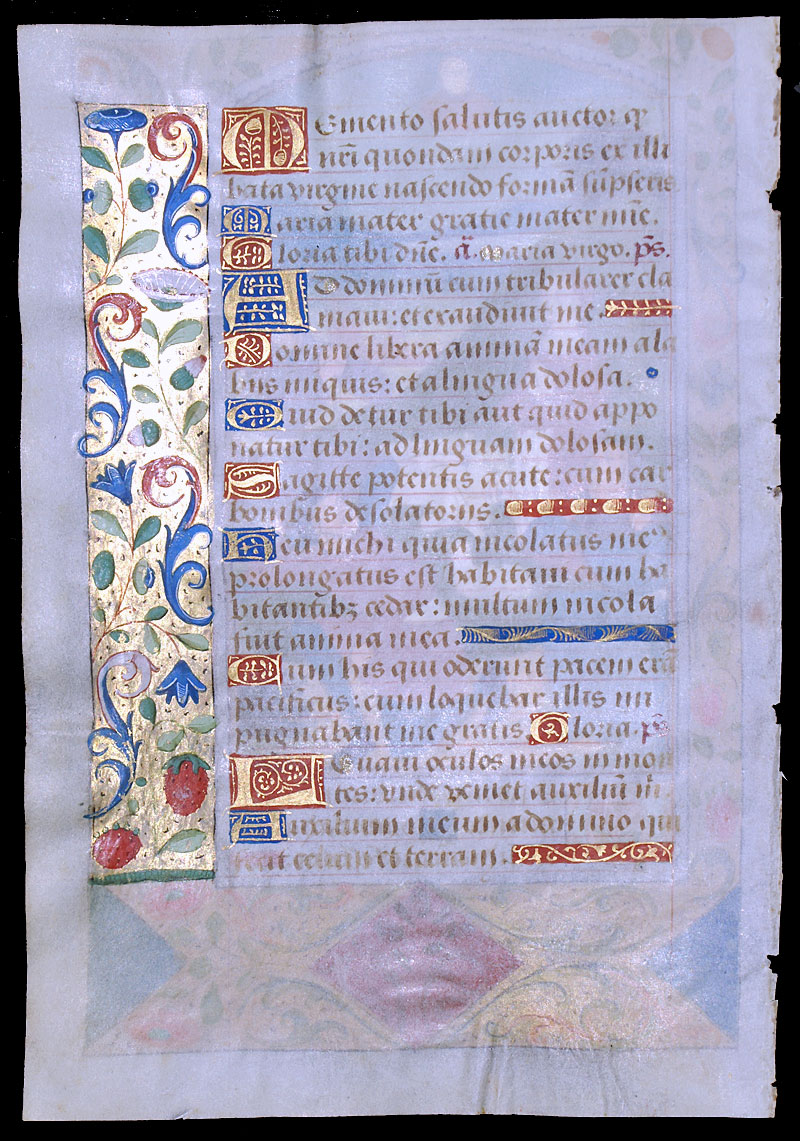 Memento salutis auctor q
nr̃i quondam corporis ex illi
bata virgine nascendo formã sũpseris
Maria mater gratie mater mĩe.
Gloria tibi dñe. ã. Maria virgo. p̃s.
AD dominũ cum tribularer cla
maui: et exaudiuit me.
Domine libera animã meam a la
biis iniquis: et a lingua dolosa.
Quid detur tibi aut quid appo
natur tibi: ad linguam dolosam.
Sagitte potentis acute: cum car
bonibus desolatoriis.
Heu michi quia incolatus me
prolongatus est habitaui cum ha
bitantibꝫ cedar: multum incola
fuit anima mea.
Cum his qui oderunt pacem era
pacificus: cum loquebar illis im
pugnabant me gratis. Gloria. p̃s
Leuaui oculos meos in mon
tes: vnde veniet auxiliũ m̃.
Auxilium meum a domino qui
fecit celum et terram.